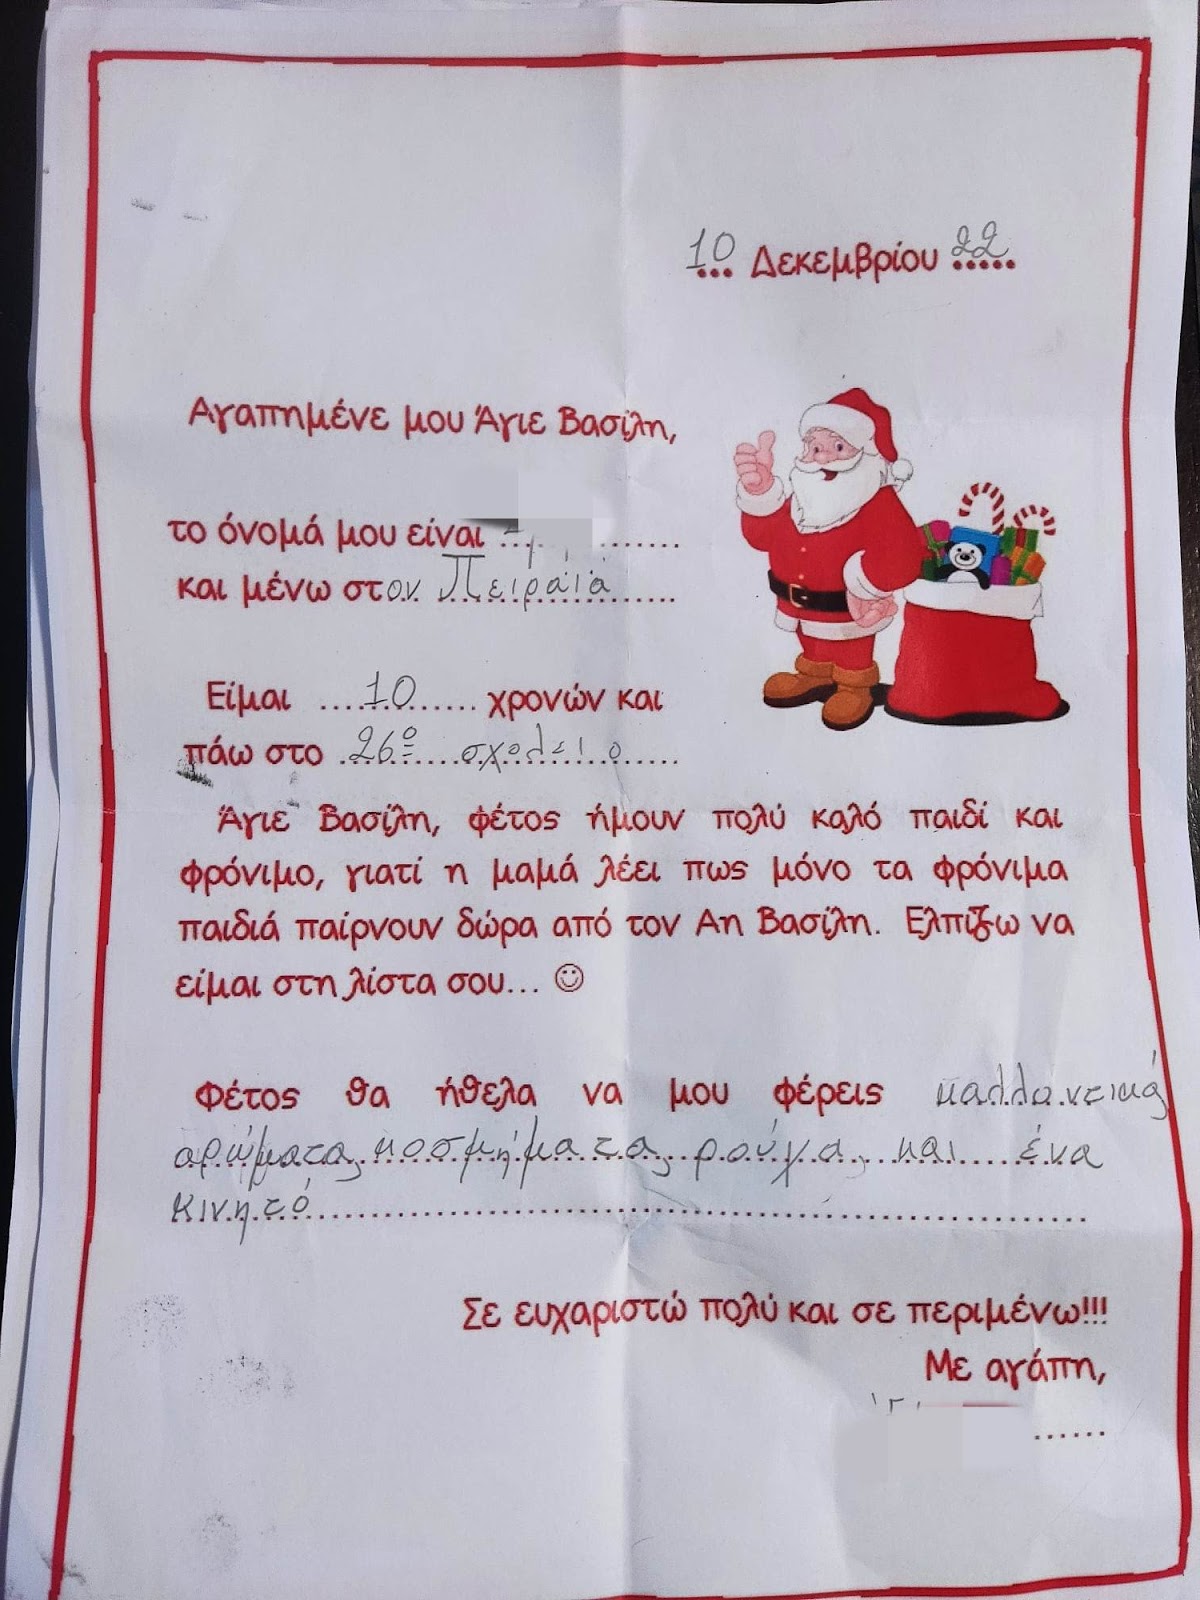 10 Δεκεμβρίου 22
Αγαπημένε μου Άγιε Βασίλη,
το όνομά μου είναι
και μένω στον Πειραιά
Είμαι ....10...... χρονών και
πάω στο 26ο σχολείο
Άγιε Βασίλη, φέτος ήμουν πολύ καλό παιδί και
φρόνιμο, γιατί η μαμά λέει πως μόνο τα φρόνιμα
παιδιά παίρνουν δώρα από τον Αη Βασίλη. Ελπίζω να
είμαι στη λίστα σου... ☺
Φέτος θα ήθελα να μου φέρεις καλλαντικά
αρώματα, κοσμήματα, ρούχα, και ένα
κινητό
Σε ευχαριστώ πολύ και σε περιμένω!!!
Με αγάπη,